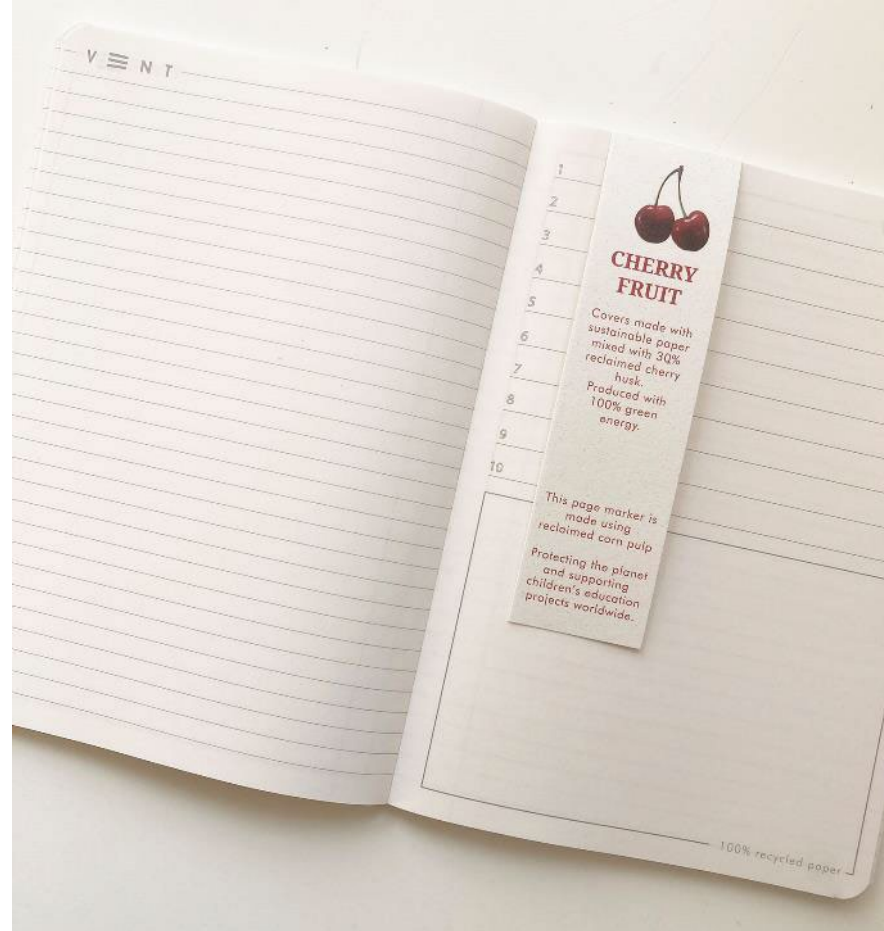 V Ξ N T
1
2
3
4
5
6
7
8
9
10
CHERRY
FRUIT
Covers made with
sustainable paper
mixed with 30%
reclaimed cherry
husk.
Produced with
100% green
energy.
This page marker is
made using
reclaimed corn pulp
Protecting the planet
and supporting
children's education
projects worldwide.
100% recycled paper